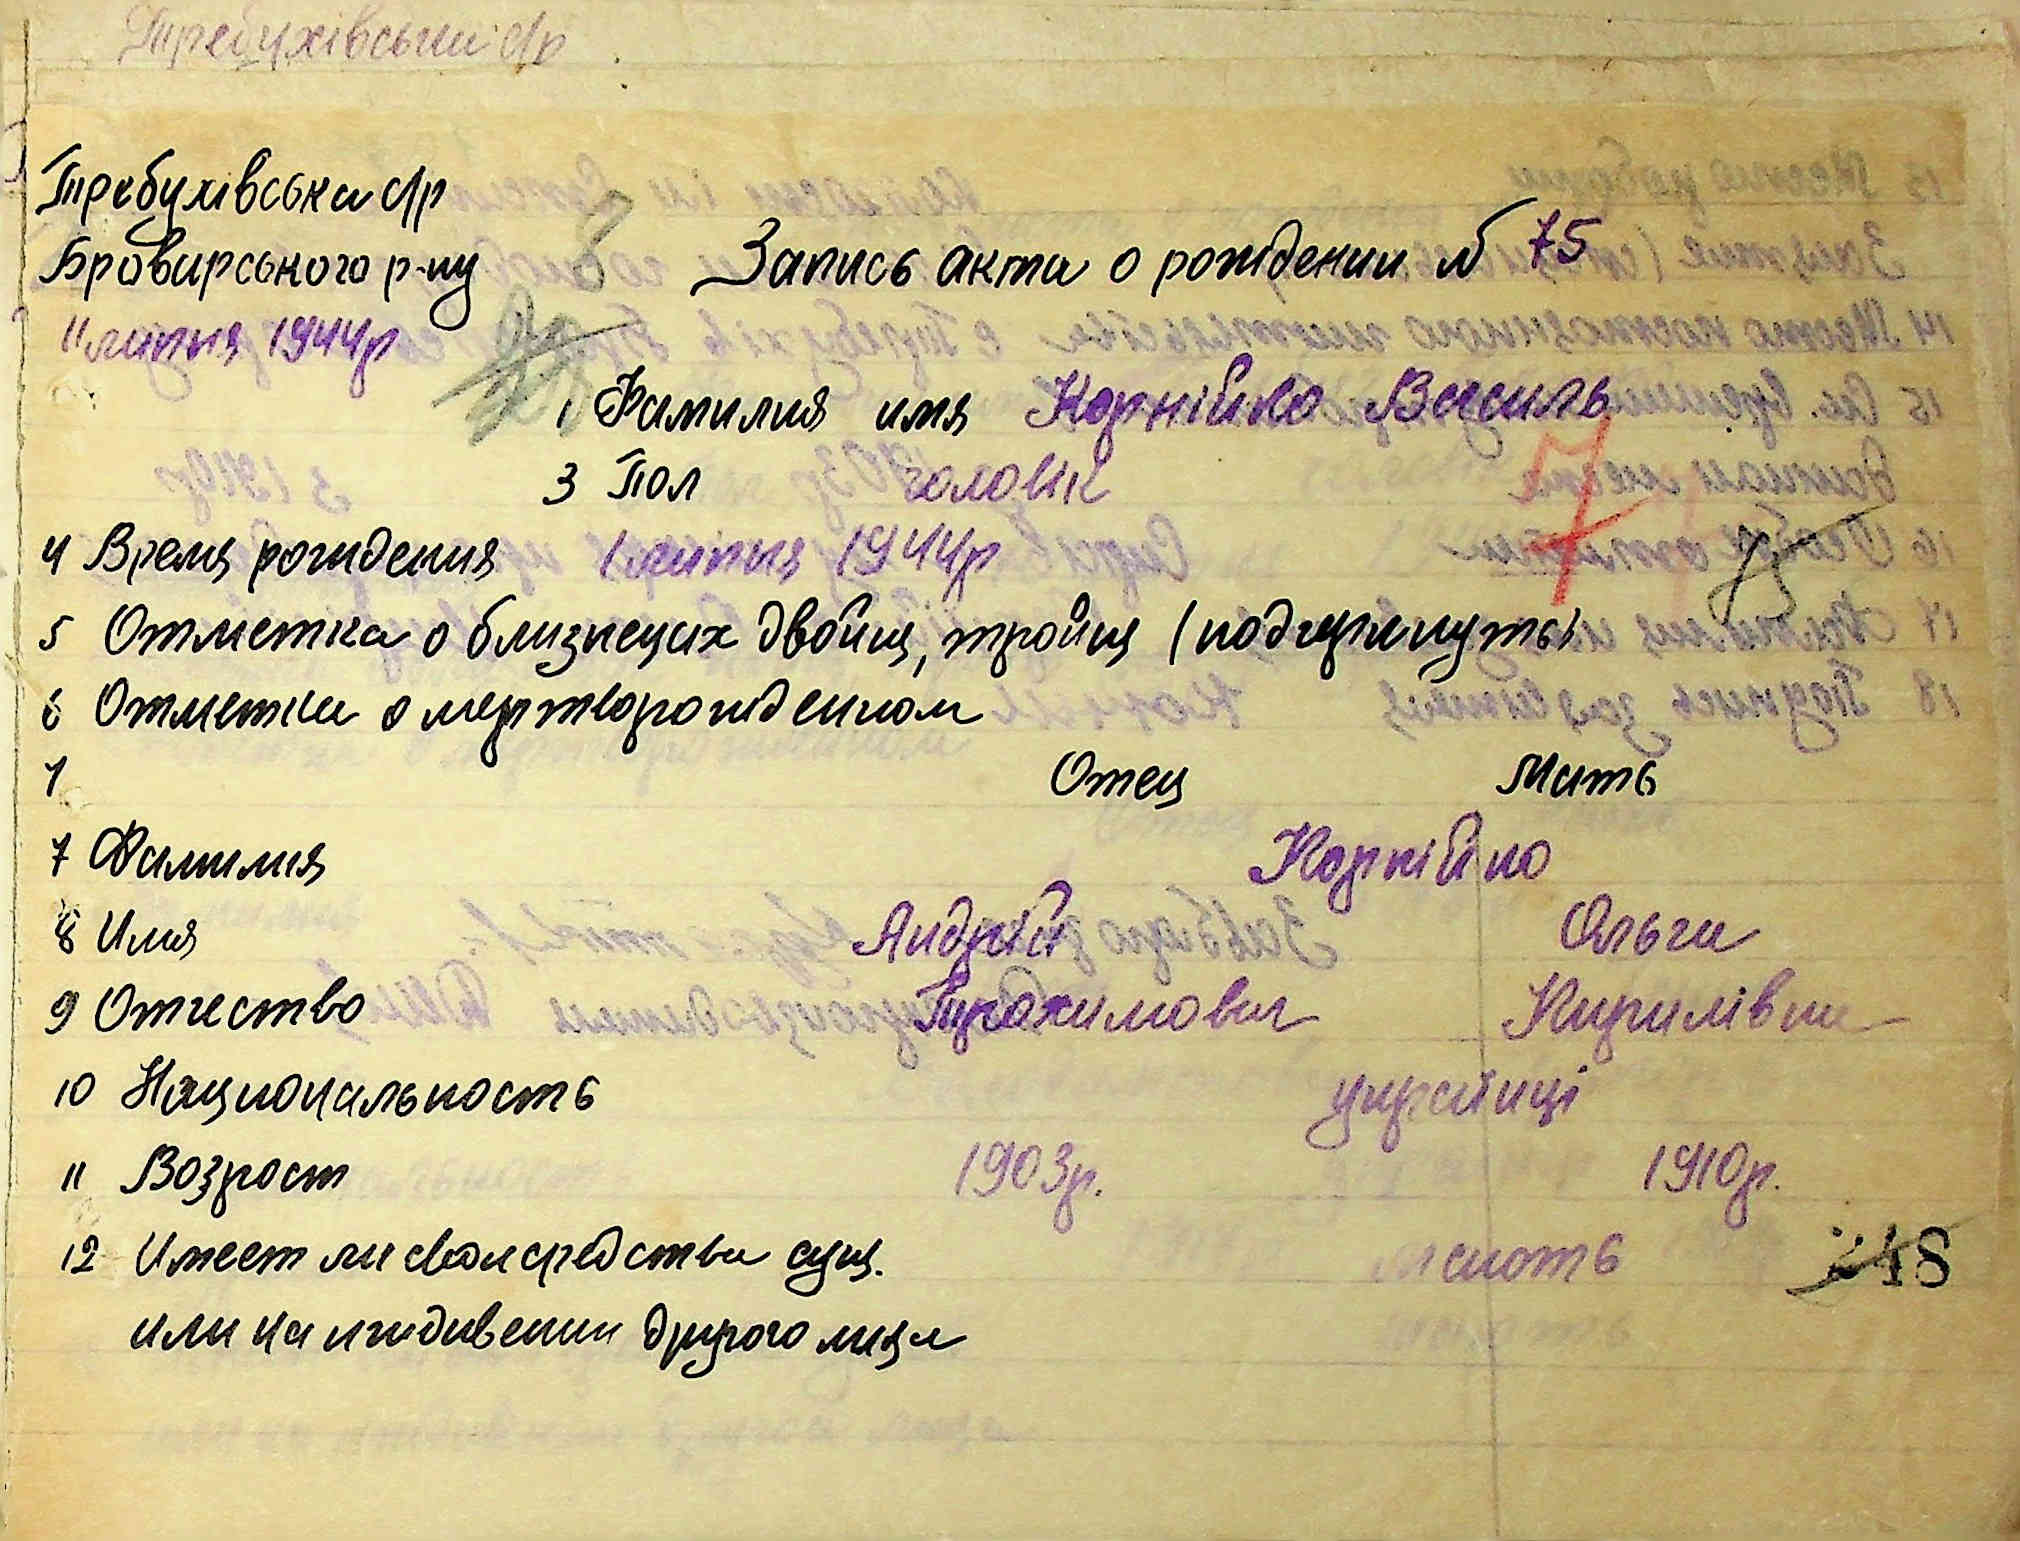 Требухівський с/р
Требухівська с/р
Броварського р-ну
Запись акта о рождении № 75
11 липня 1944р
1 Фамилия имя Корнійко Василь
3 Пол чоловік
4 Время рождения 1 липня 1944р
75
5 Отметка о близнецах двойщ, тройщ (подчеркнуть)
6 Отметка о мертворожденном
7 Отец Мать
7 Фамилия Корнійко
8 Имя Андрій Ольга
9 Отчество Трохимович Кирилівна
10 Национальность українці
11 Возраст 1903р. 1910р.
12 Имеет ли свои средства сущ. мають
или на иждивении другого лица
248